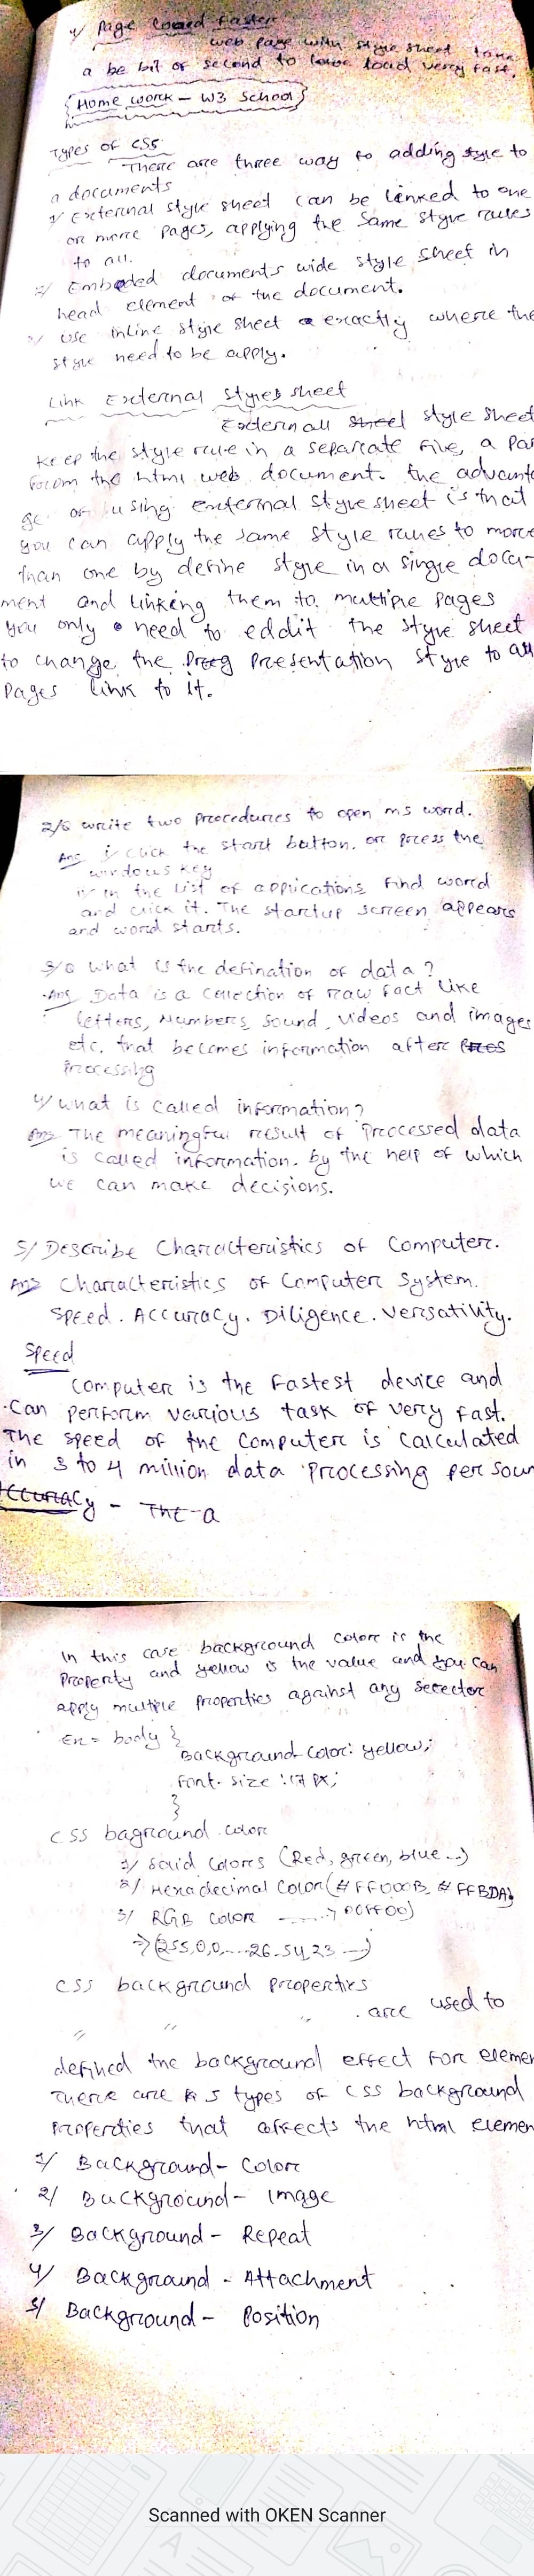 4/ Page Loard Faster
web page with style sheet take
a be bit of second to load very fast.
Home work - W3 School
Types of CSS
There are three way to adding style to
a documents
1/ External style sheet can be linked to one
or more pages, applying the same style rules
to all.
2/ Embeded documents wide style sheet in
head element of the document.
3/ use inline style sheet exactly where the
style need to be apply.
Link External Styles sheet
External style sheet
keep the style rule in a separate file, a par
from the html web document. the advanta
ge of using external style sheet is that
you can apply the same style rules to more
than one by define style in a single docu-
ment and linking them to multiple pages
you only need to eddit the style sheet
to change the Preeg Presentation style to all
Pages link to it.
2/Q write two procedures to open ms word.
Ans i/ click the start button. or press the
windows key
ii/ in the list of applications find word
and click it. The startup screen appears
and word starts.
3/Q what is the defination of data?
Ans Data is a collection of raw fact like
letters, Numbers, sound, videos and images
etc. that becomes information after
processing
4/ what is called information?
Ans The meaningful result of processed data
is called information. by the help of which
we can make decisions.
5/ Describe Characteristics of Computer.
Ans Characteristics of Computer System.
Speed. Accuracy. Diligence. versatility.
Speed
Computer is the fastest device and
Can perform various task of very fast.
The speed of the Computer is calculated
in 3 to 4 million data processing per soun
Accuracy - The a
In this case background color is the
Property and yellow is the value and you can
apply multiple properties against any selector
Ex = body {
Background-color: yellow;
font-size : 17 px;
}
CSS baground color
1/ Solid Colors (Red, green, blue...)
2/ Hexadecimal Color (#FF000B, #FFBDA)
3/ RGB Color
→ (255,0,0,....26.54,23 —)
CSS background properties
are used to
defined the background effect for elemen
There are 5 types of CSS background
Properties that affects the html elemen
1/ Background - Color
2/ Background - Image
3/ Background - Repeat
4/ Background - Attachment
5/ Background - Position
Scanned with OKEN Scanner